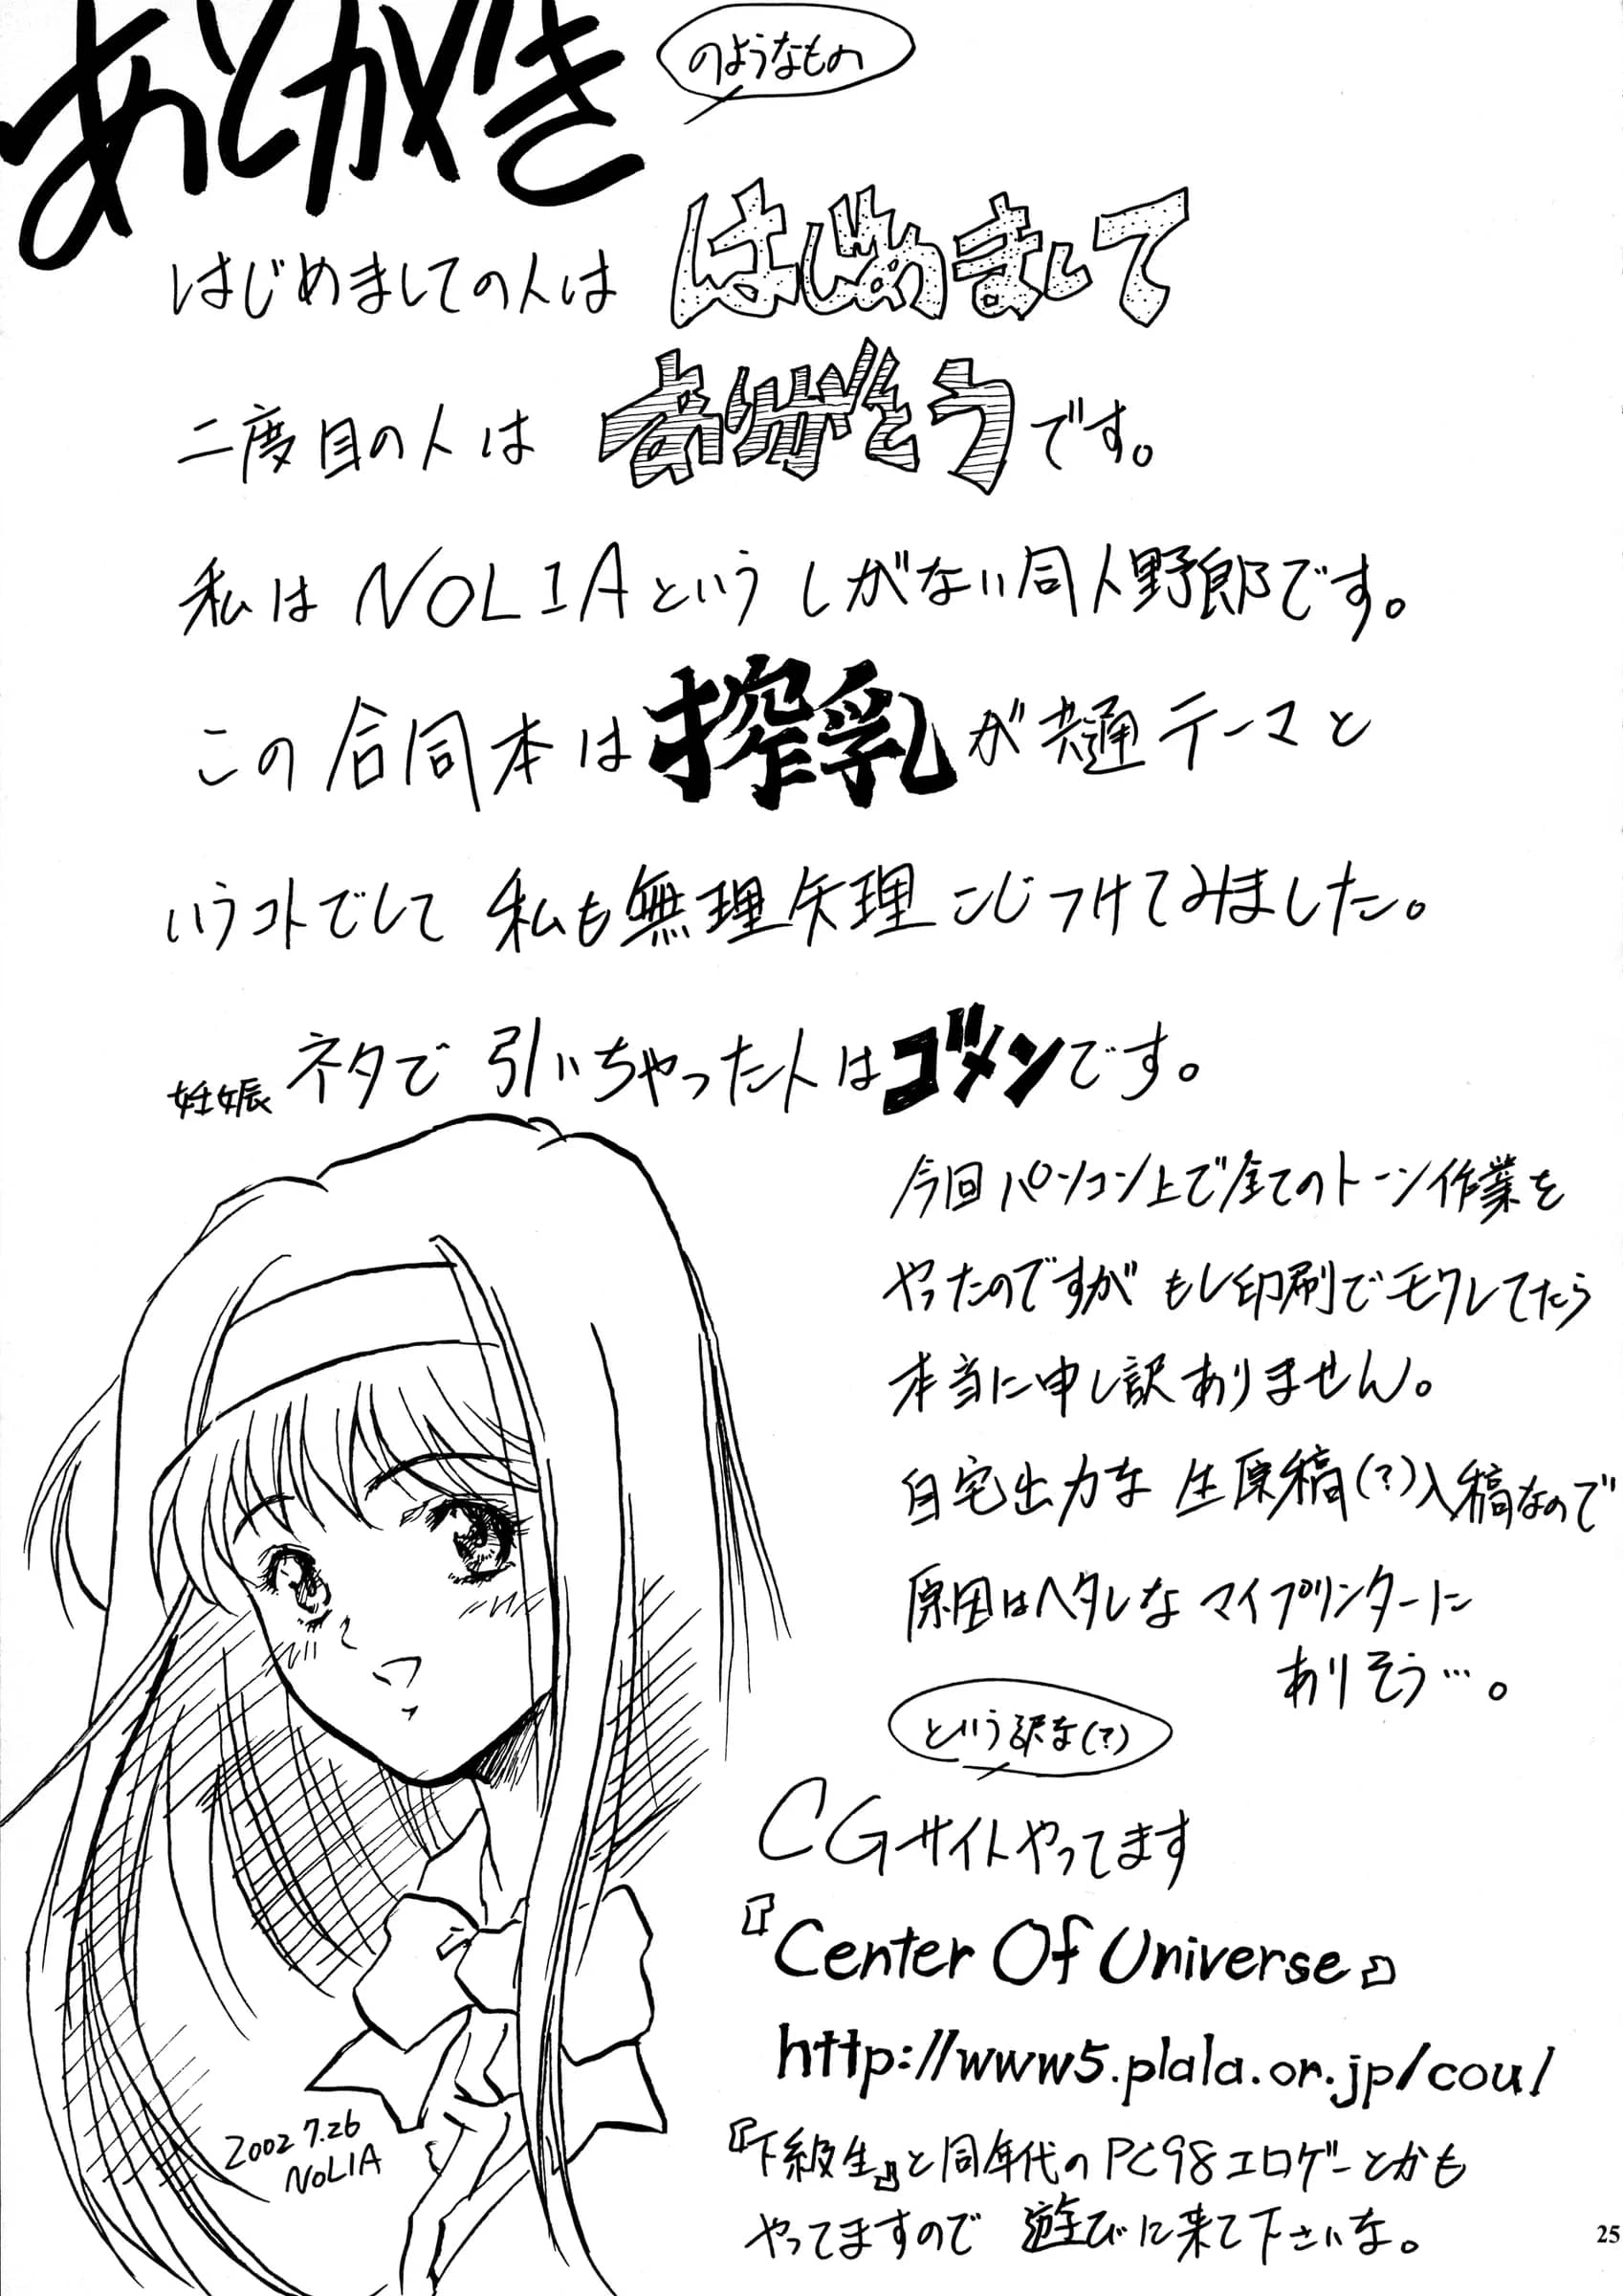 あとがき
のようなもの
はじめましての人は はじめまして
二度目の人は ありがとうです。
私は NOLIAという しがない同人野郎です。
この合同本は搾乳が共通テーマと
いうコトでして 私も無理矢理こじつけてみました。
妊娠ネタで 引いちゃった人はゴメンです。
今回パソコン上で全てのトーン作業を
やったのですが もし印刷でモワレてたら
本当に申し訳ありません。
自宅出力な 生原稿(?)入稿なので
原因はヘタレな マイプリンターに
ありそう…。
という訳な(?)
CGサイトやってます
『Center Of Universe』
http://www5.plala.or.jp/cou/
『下級生』と同年代のPC98エロゲーとかも
やってますので 遊びに来て下さいな。
2002 7.26
NOLIA
25